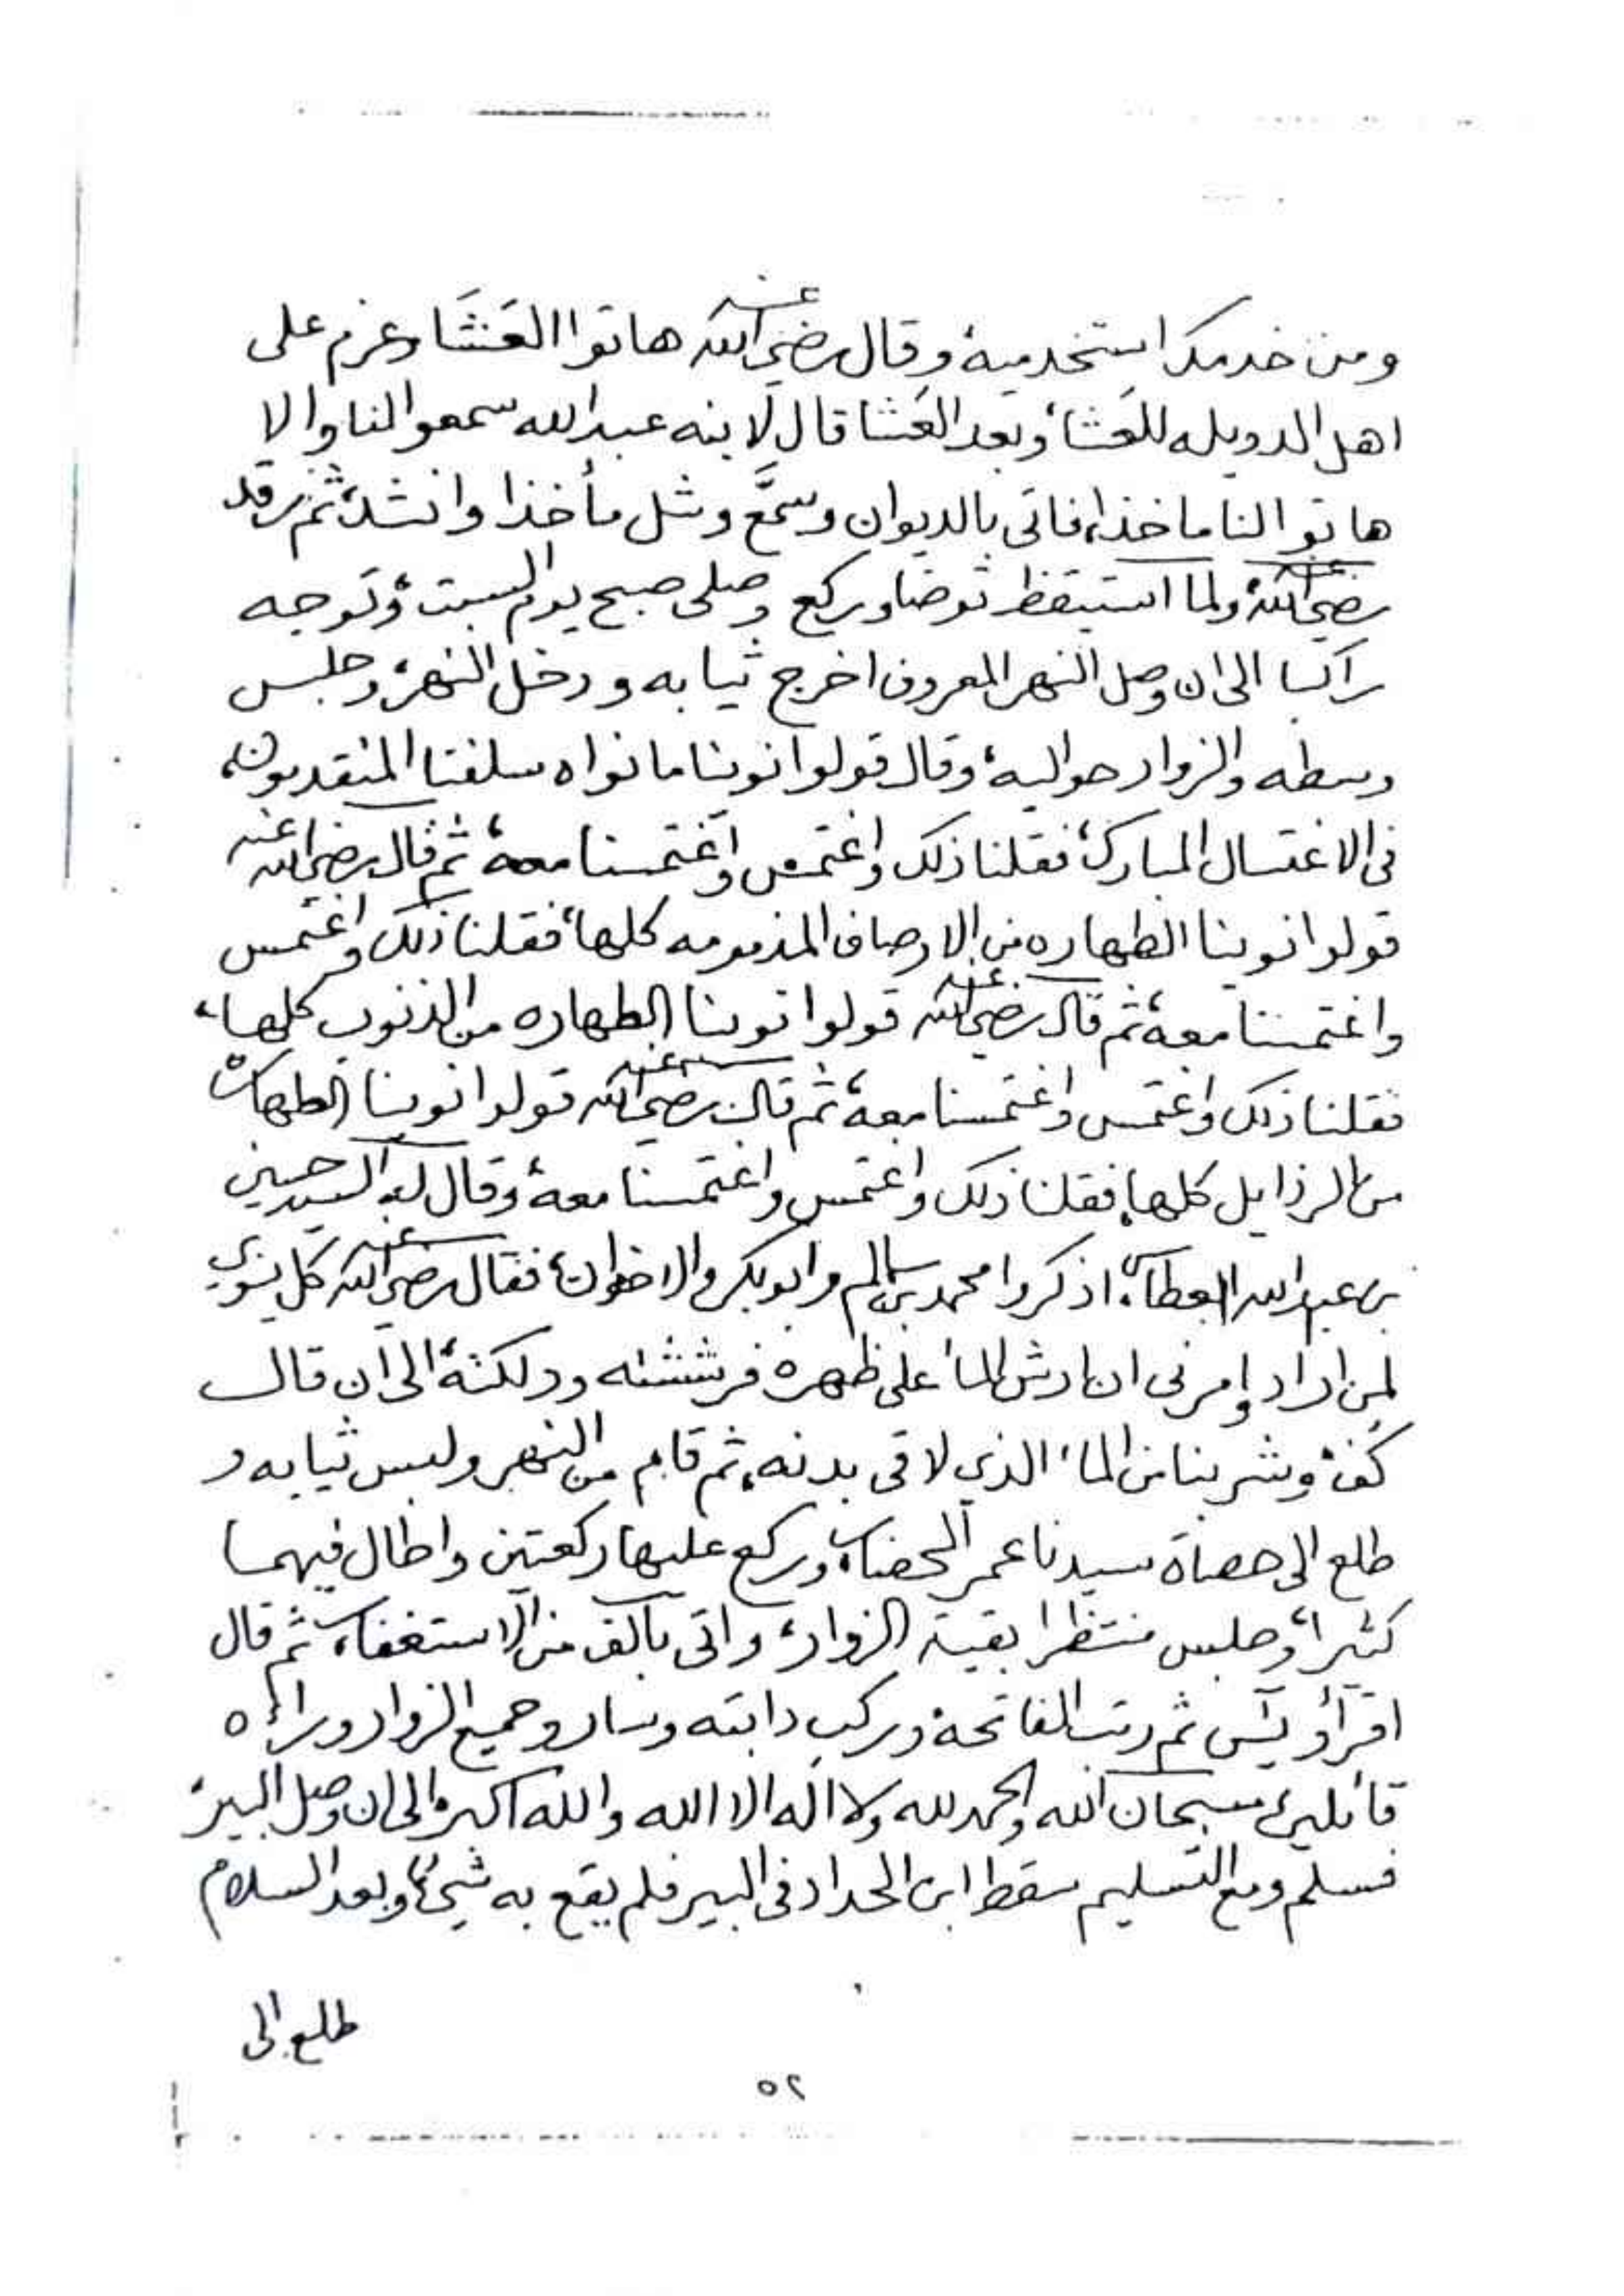 ومن خدمك استخدميه، وقال رضي الله عنه هاتوا العَشَا وعزم على
اهل الدويله للعَشاء، وبعد العَشا قال لابنه عبدالله سمعوا لنا والا
هاتوا لنا ماخذا، فاتى بالديوان وسمَّع وشل مأخذا وانشد، ثم رقد
رضي الله عنه، ولما استيقظ توضا وركع وصلى صبح يوم السبت، وتوجه
راكبا الى ان وصل النهر المعروف اخرج ثيابه ودخل النهر، وجلس
وسطه والزوار حواليه، وقال قولوا نوينا ما نواه سلفنا المتقدمون،
في الاغتسال المبارك، فقلنا ذلك واغتمس واغتمسنا معه، ثم قال رضي الله عنه
قولوا نوينا الطهاره من الاوصاف المذمومه كلها، فقلنا ذلك واغتمس
واغتمسنا معه، ثم قال رضي الله عنه قولوا نوينا الطهاره من الذنوب كلها،
فقلنا ذلك واغتمس واغتمسنا معه، ثم قال رضي الله عنه قولوا نوينا الطهاره
من الرذايل كلها، فقلنا ذلك واغتمس واغتمسنا معه، وقال له السيد حسين
بن عبدالله العطاس، اذكروا محمد بن سالم وابوبكر والاخوان، فقال رضي الله عنه كل ينوي
لمن اراد وامرني ان ارش الماء على ظهره فرششته ودلكته، الى ان قال
كُف، وشربنا من الماء الذي لاقى بدنه، ثم قام من النهر ولبس ثيابه و
طلع الى حصاة سيدنا عمر المحضار، وركع عليها ركعتين واطال فيهما
كثيرا، وجلس منتظرا بقية الزوار، واتى بألف من الاستغفار، ثم قال
اقرأو يَس ثم رتب الفاتحة، وركب دابته وسار وجميع الزوار وراءه
قائلين سبحان الله والحمد لله ولا اله الا الله والله اكبر، الى ان وصل البير،
فسلم ومع التسليم سقط ابن الحداد في البير فلم يقع به شيء، وبعد السلام
طلع الى
٥٢